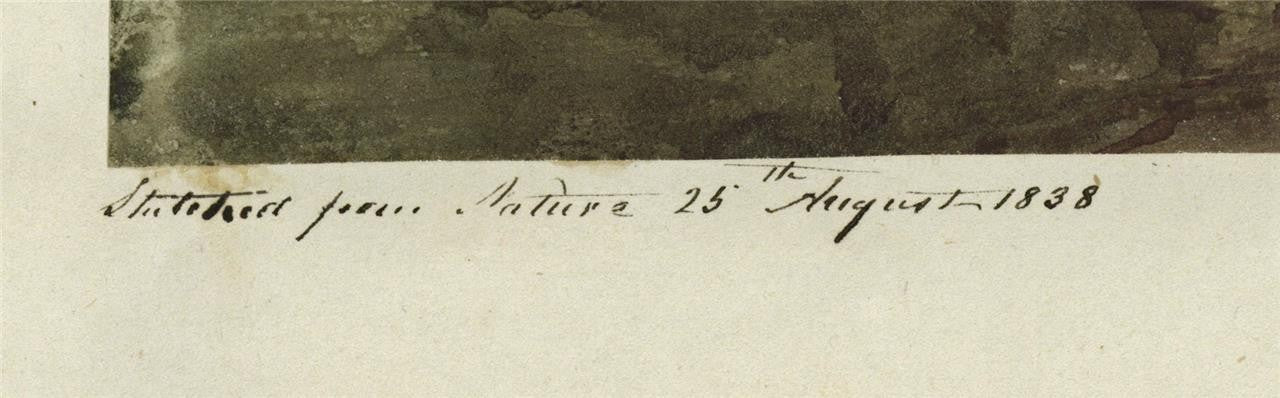 Sketched from Nature 25th August 1838